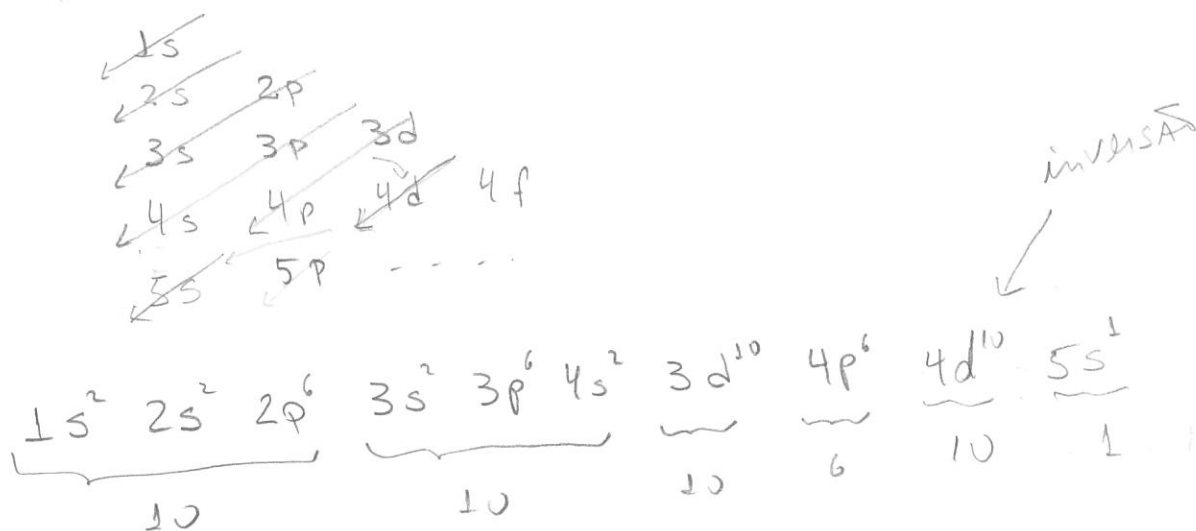 1s
2s 2p
3s 3p 3d
4s 4p 4d 4f
5s 5p - - - -
inversão
1s² 2s² 2p⁶ 3s² 3p⁶ 4s² 3d¹⁰ 4p⁶ 4d¹⁰ 5s¹
10 10 10 6 10 1